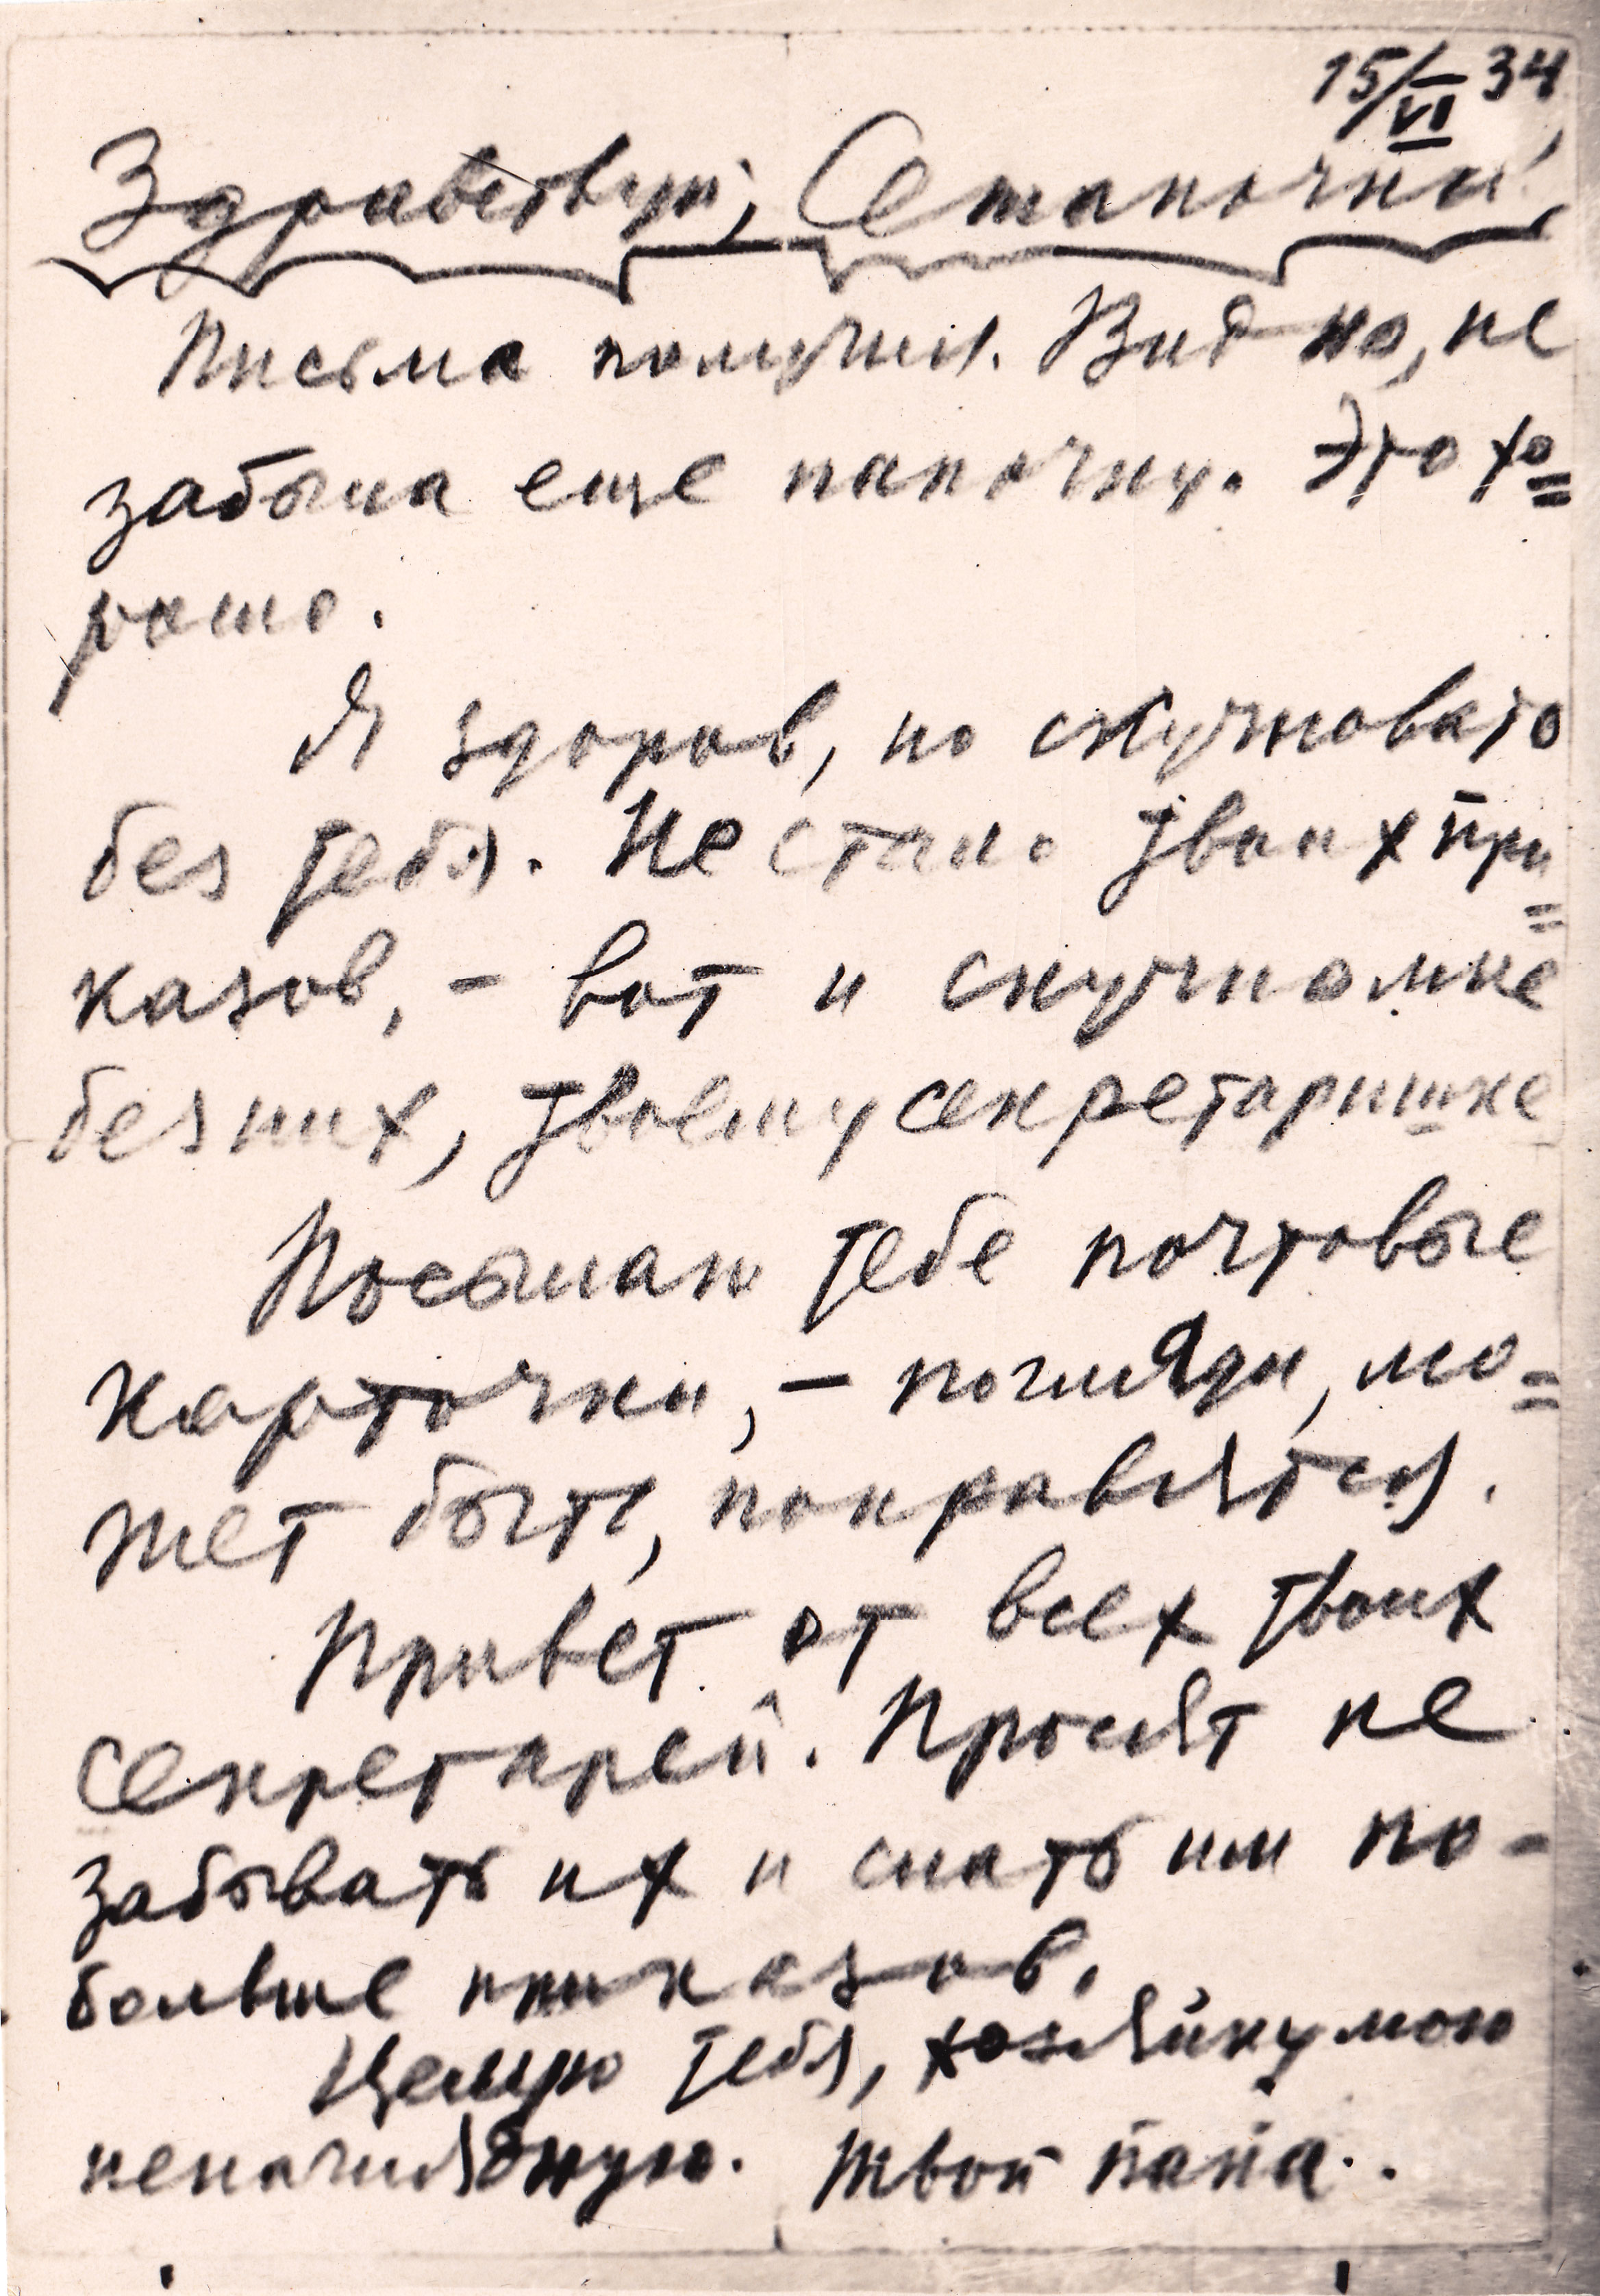 15/VI 34
Здравствуй, Сетаночка!
Письма получил. Видно, не
забыла еще папочку. Это хо=
рошо.
Я здоров, но скучновато
без тебя. Не стало твоих при=
казов, – вот и скучно мне
без них, твоему секретаришке
Посылаю тебе почтовые
карточки, – погляди, мо=
жет быть, понравятся.
Привет от всех твоих
секретарей. Просят не
забывать их и слать им по-
больше приказов.
Целую тебя, хозяйку мою
ненаглядную. Твой папа.